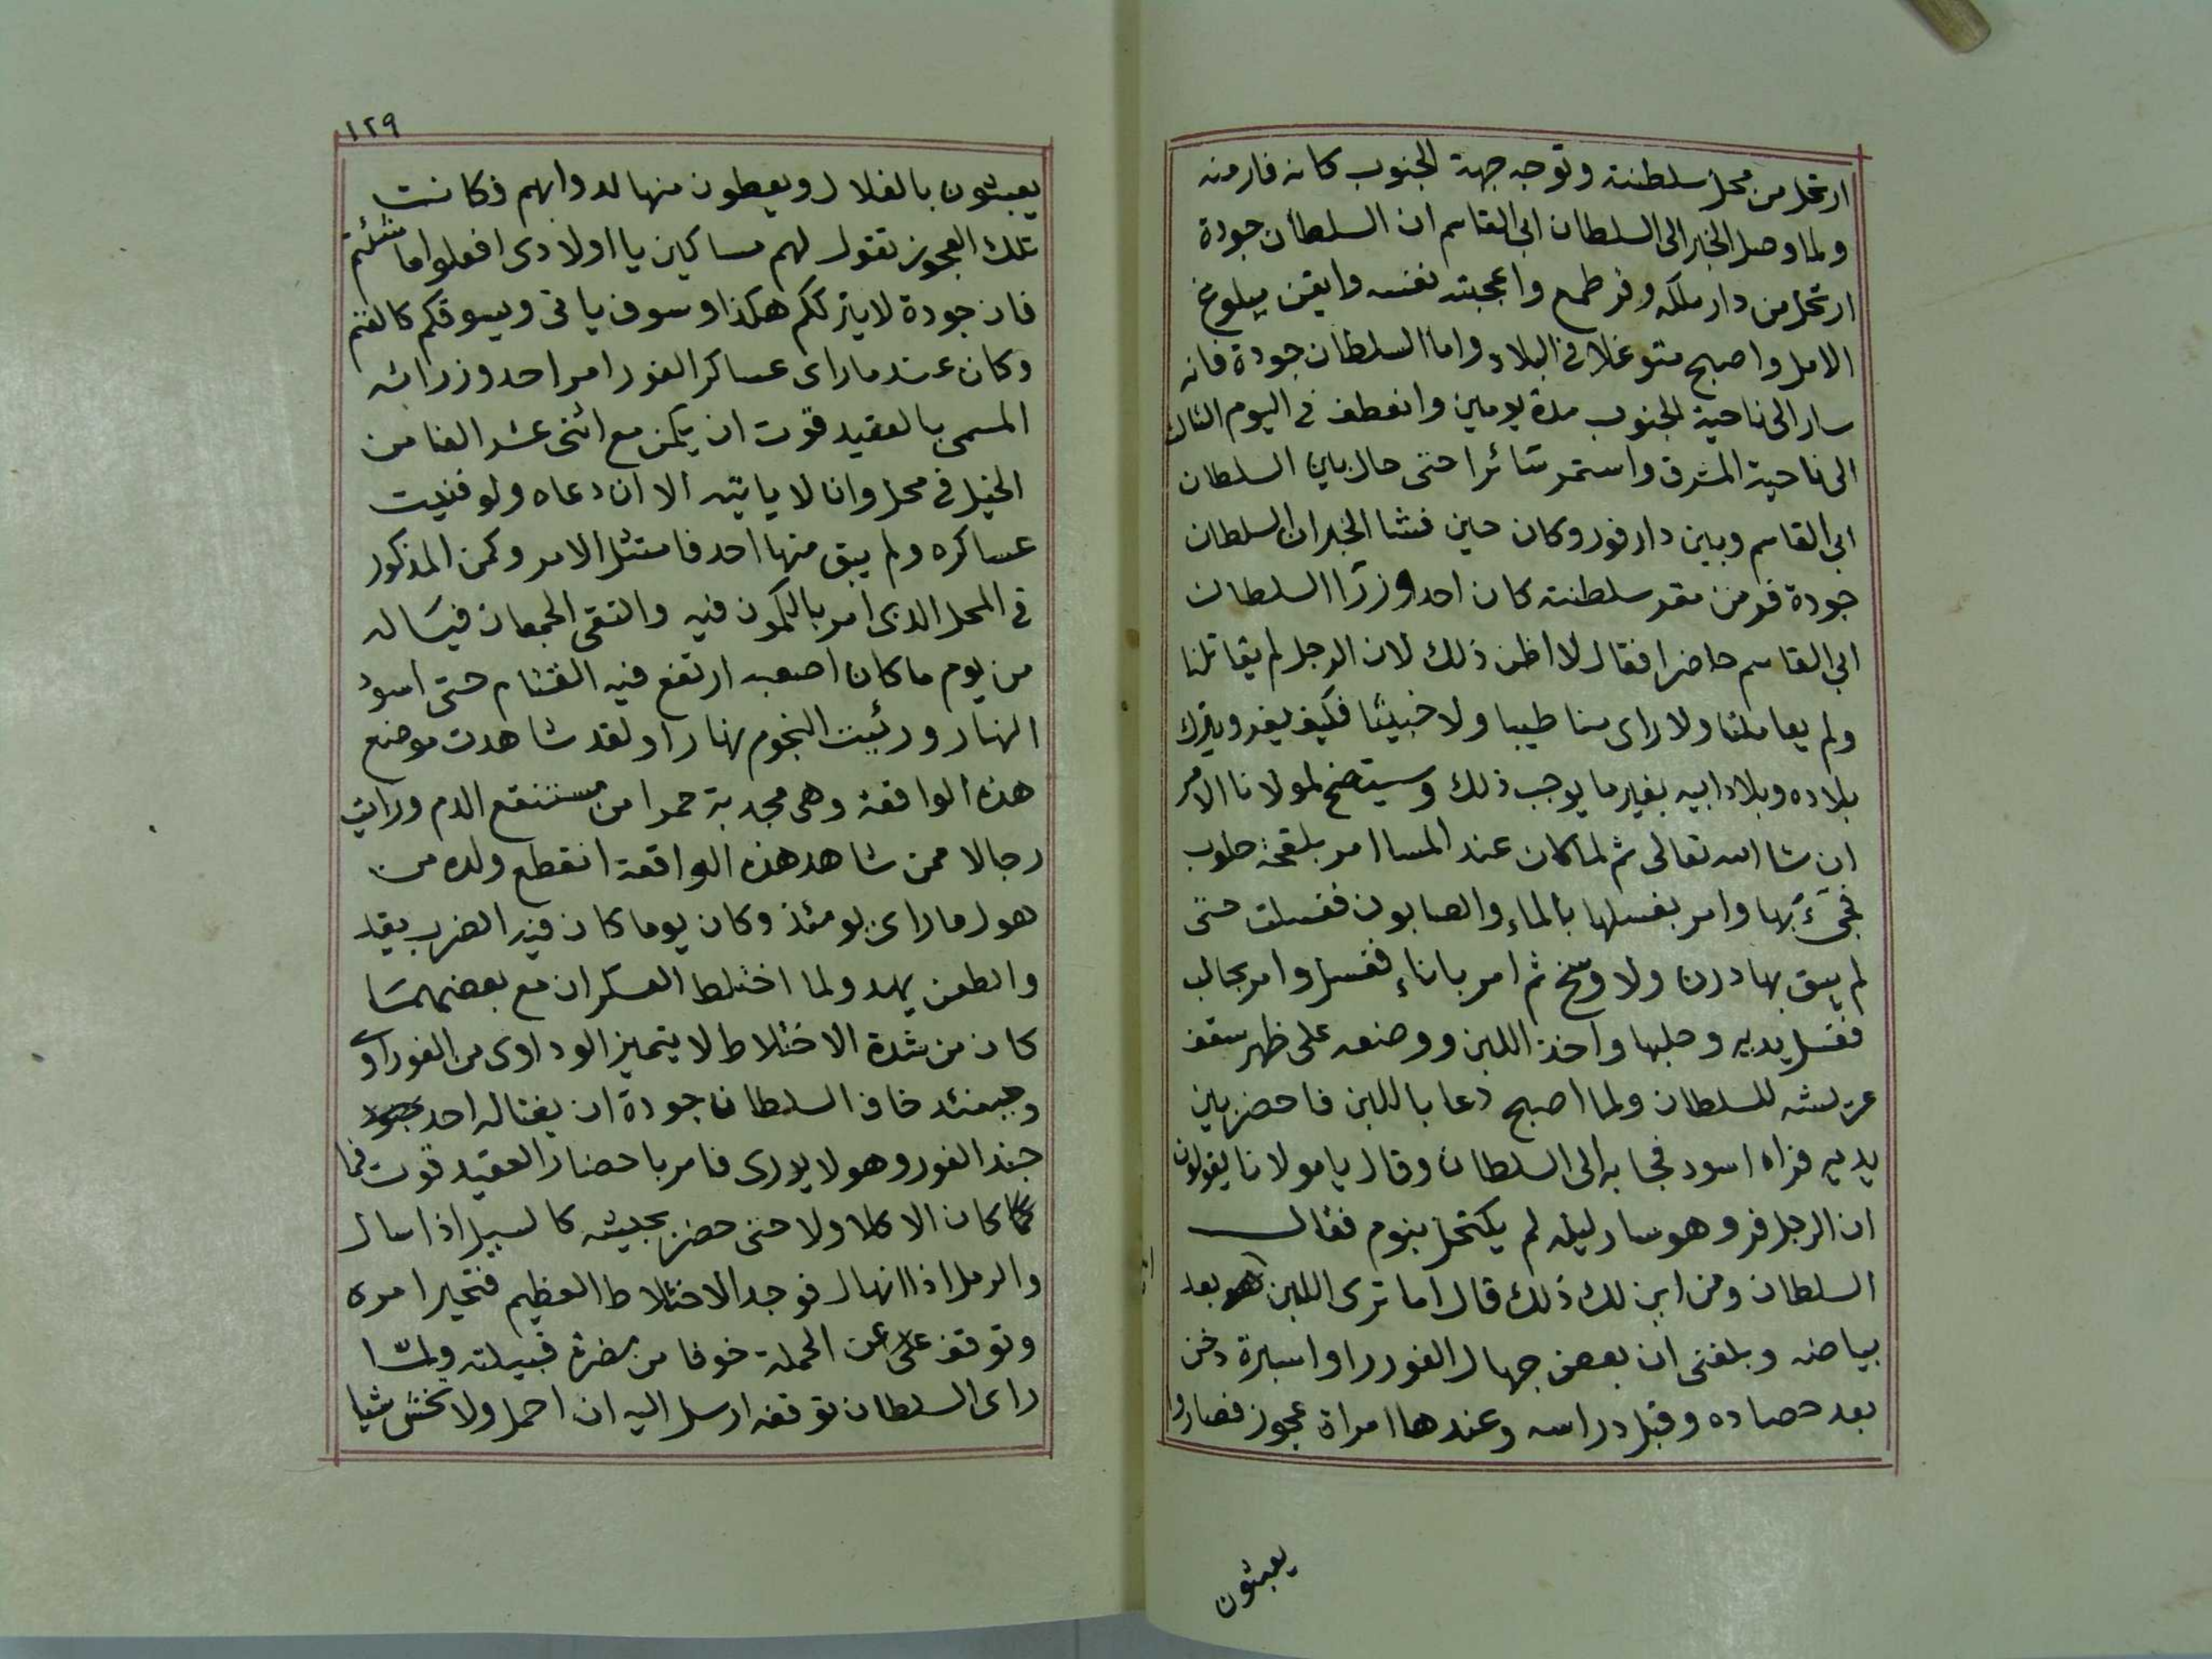 ارتحل من محل سلطنته وتوجه جهة الجنوب كانه فار منه
ولما وصل الخبر الى السلطان ابى القاسم ان السلطان جودة
ارتحل من دار ملكه وفر طمع واعجبته نفسه وايقن ببلوغ
الامل واصبح متوغلا فى البلاد واما السلطان جودة فانه
سار الى ناحية الجنوب مدة يومين وانعطف فى اليوم الثالث
الى ناحية المشرق واستمر سَائرا حتى حال بين السلطان
ابى القاسم وبين دارفور وكان حين فشا الخبر ان السلطان
جودة فر من مقر سلطنته كان احد وزرَا السلطان
ابى القاسم حاضرا فقال لا اظن ذلك لان الرجل لم يقاتلنا
ولم يعاملنا ولا راى منا طيبا ولا خبيثا فكيف يفر ويترك
بلاده وبلاد ابيه بغير ما يوجب ذلك وسيتضح لمولانا الامر
ان شا الله تعالى ثم لما كان عند المسا امر بلقحة حلوب
فجئَ بها وامر بغسلها بالماء والصابون فغسلت حتى
لم يبق بها درن ولا وسخ ثم امر باناء فغسل وامر بحالب
فغسل يديه وحلبها واخذ اللبن ووضعه على ظهر سقف
عريشه للسلطان ولما اصبح دعا باللبن فاحضر بين
يديه فراه اسود فجا به الى السلطان وقال يا مولانا يقولون
ان الرجل فر وهو سار ليله لم يكتحل بنوم فقال
السلطان ومن اين لك ذلك قال اما ترى اللبن بعد
بياضه وبلغنى ان بعض جهال الفور راوا سبرة دخن
بعد حصاده وقبل دراسه وعندها امراة عجوز فصاروا
يعبثون
١٢٩
يعبثون بالغلال ويعطون منها لدوابهم فكانت
تلك العجوز تقول لهم مساكين يا اولادى افعلوا ما شئتم
فان جودة لا يترككم هكذا وسوف ياتى ويسوقكم كالغنم
وكان عندما راى عساكر الفور امر احد وزرائه
المسمى بالعقيد قوت ان يكمن مع اثنى عشر الفا من
الخيل فى محل وان لا ياتيه الا ان دعاه ولو فنيت
عساكره ولم يبق منها احد فامتثل الامر وكمن المذكور
فى المحل الذى امر بالكمون فيه والتقى الجمعان فيَاله
من يوم ما كان اصعبه ارتفع فيه القتام حتى اسود
النهار ورئيت النجوم نهارا ولقد شاهدت موضع
هذه الواقعة وهى مجدبة حمرا من مستنقع الدم ورايت
رجالا ممن شاهد هذه الواقعة انقطع ولده من
هول ما راى يومئذ وكان يوما كان فيه الضرب يقد
والطعن يهد ولما اختلط العسكران مع بعضهمَا
كان من شدة الاختلاط لا يتميز الوداوى من الفوراوى
وحينئذ خاف السلطان جودة ان يغتاله احد
جند الفور وهو لا يدرى فامر باحضار العقيد قوت فما
كان الا كلا ولا حتى حضر بجيشه كالسيل اذا سال
والرمل اذا انهال فوجد الاختلاط العظيم فتحير امره
وتوقف عن الحملة خوفا من مضرة قبيلته ولمّا
راى السلطان توقفه ارسل اليه ان احمل ولا تخش شيا